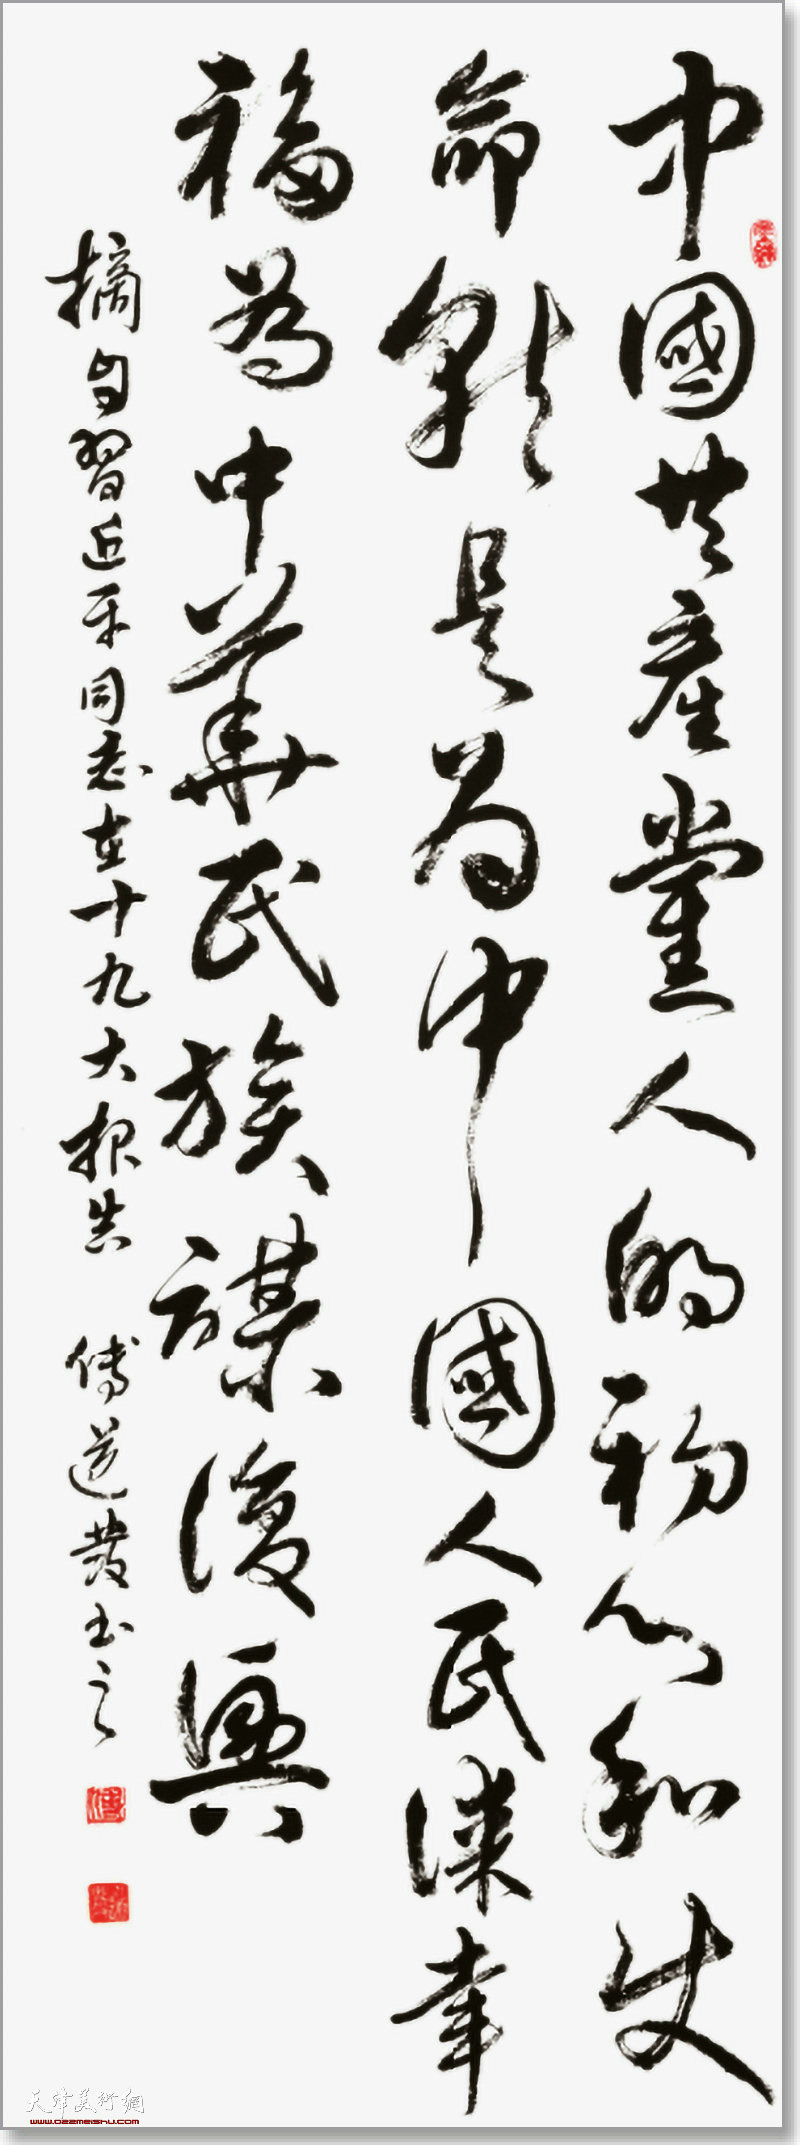 中國共產黨人的初心和使
命就是為中國人民謀幸
福為中華民族謀復興
摘自習近平同志在十九大报告 傅道發书之
天津美術網
www.022meishu.com